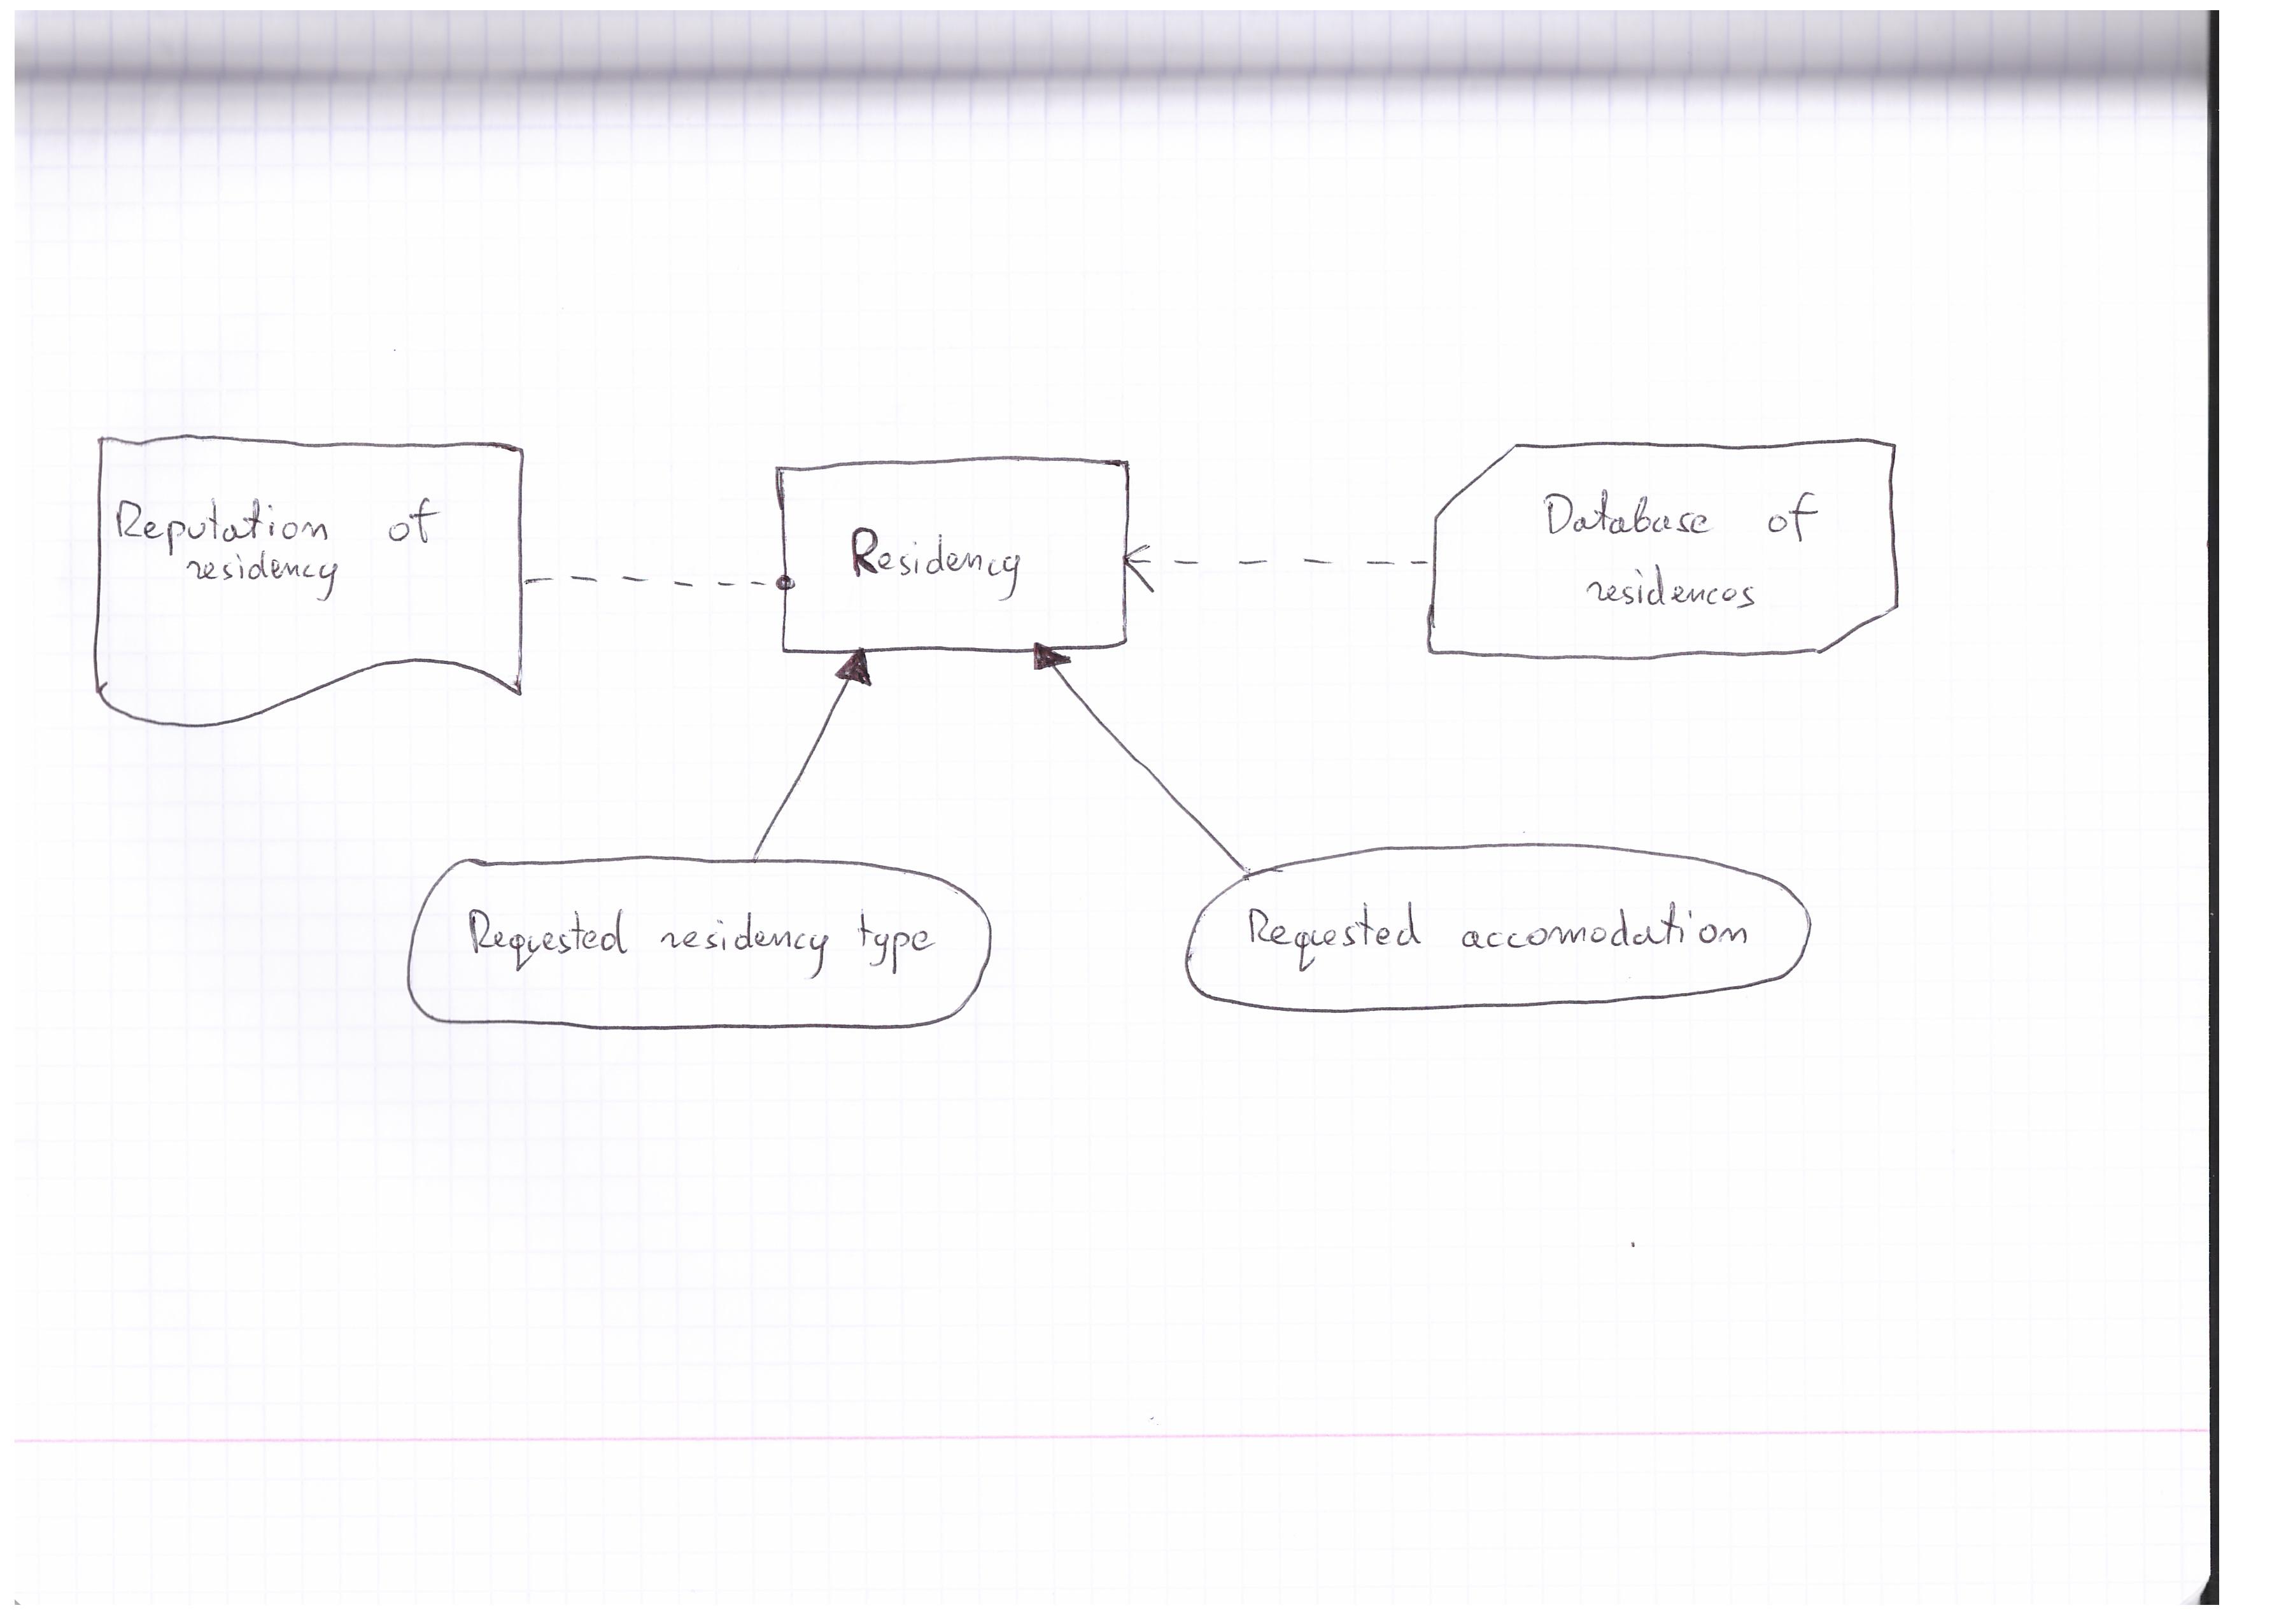 Reputation of
residency
Residency
Database of
residences
Requested residency type
Requested accomodation